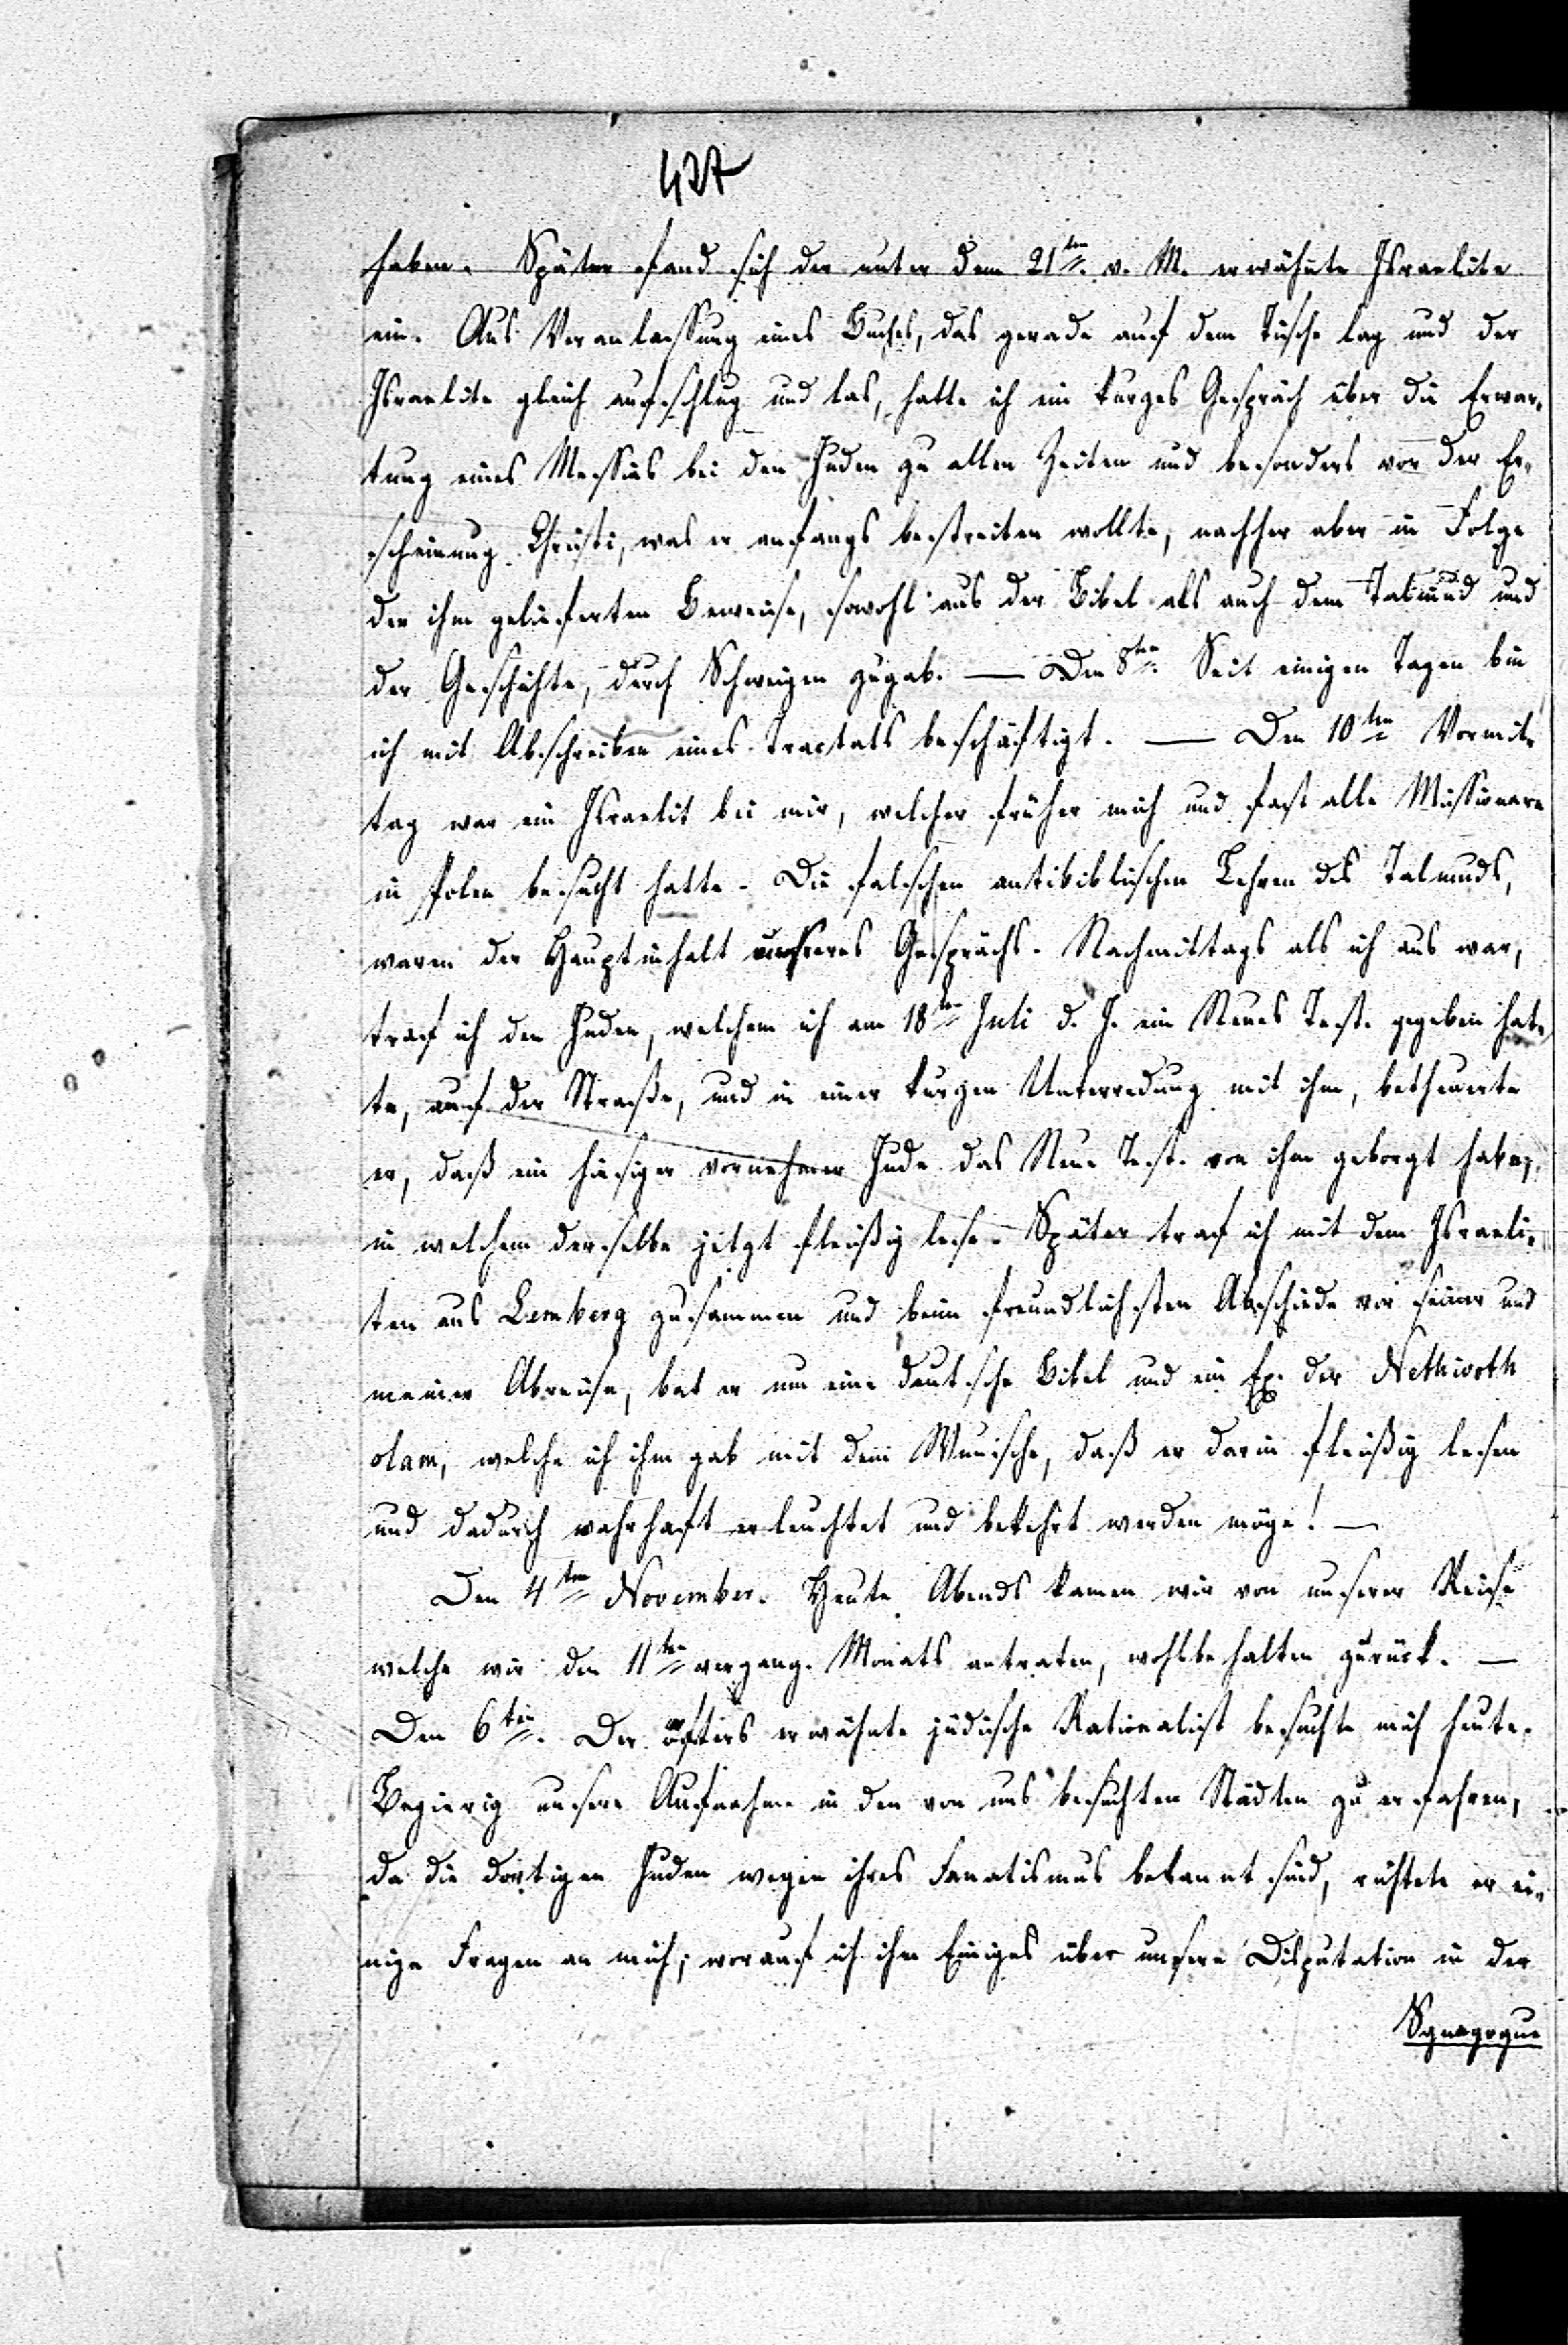 427
haben. Später fand sich der unter dem 21ten. v. M. erwähnte Israelite
ein. Aus Veranlassung eines Buches, das gerade auf dem Tische lag und der
Israelite gleich aufschlug und las, hatte ich ein kurzes Gespräch über die Erwar-
tung eines Messias bei den Juden zu allen Zeiten und besonders vor der Er-
scheinung Christi, was er anfangs bestreiten wollte, nachher aber in Folge
der ihm gelieferten Beweise, sowohl aus der Bibel als auch dem Talmud und
der Geschichte, durch Schweigen zugab. — Den 8ten. Seit einigen Tagen bin
ich mit Abschreiben eines Tractats beschäftigt. — Den 10ten Vormit-
tag war ein Israelit bei mir, welcher früher mich und fast alle Missionare
in Polen besucht hatte. Die falschen antibiblischen Lehren des Talmuds,
waren der Hauptinhalt unseres Gesprächs. Nachmittags als ich aus war,
traf ich den Juden, welchem ich am 18ten Juli d. J. ein Neues Test. gegeben hat-
te, auf der Straße, und in einer kurzen Unterredung mit ihm, betheuerte
er, daß ein hiesiger vornehmer Jude das Neue Test. von ihm geborgt habe,
in welchem derselbe jetzt fleißig lese. Später traf ich mit dem Israeli-
ten aus Lemberg zusammen und beim freundlichsten Abschiede vor seiner und
meiner Abreise, bat er um eine deutsche Bibel und ein Ex. der Nethiwoth
olam, welche ich ihm gab mit dem Wunsche, daß er darin fleißig lesen
und dadurch wahrhaft erleuchtet und bekehrt werden möge! —
Den 4ten November. Heute Abends kamen wir von unserer Reise
welche wir den 11ten vergang. Monats antraten, wohlbehalten zurück. —
Den 6ten. Der öfters erwähnte jüdische Rationalist besuchte mich heute.
Begierig unsere Aufnahme in den von uns besuchten Städten zu erfahren,
da die dortigen Juden wegen ihres Fanatismus bekannt sind, richtete er ei-
nige Fragen an mich; worauf ich ihm Einiges über unsere Disputation in der
Synagogue